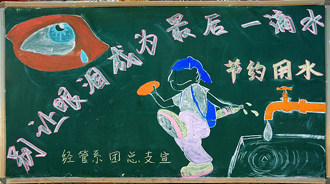 别让眼泪成为最后一滴水
节约用水
经管系团总支宣